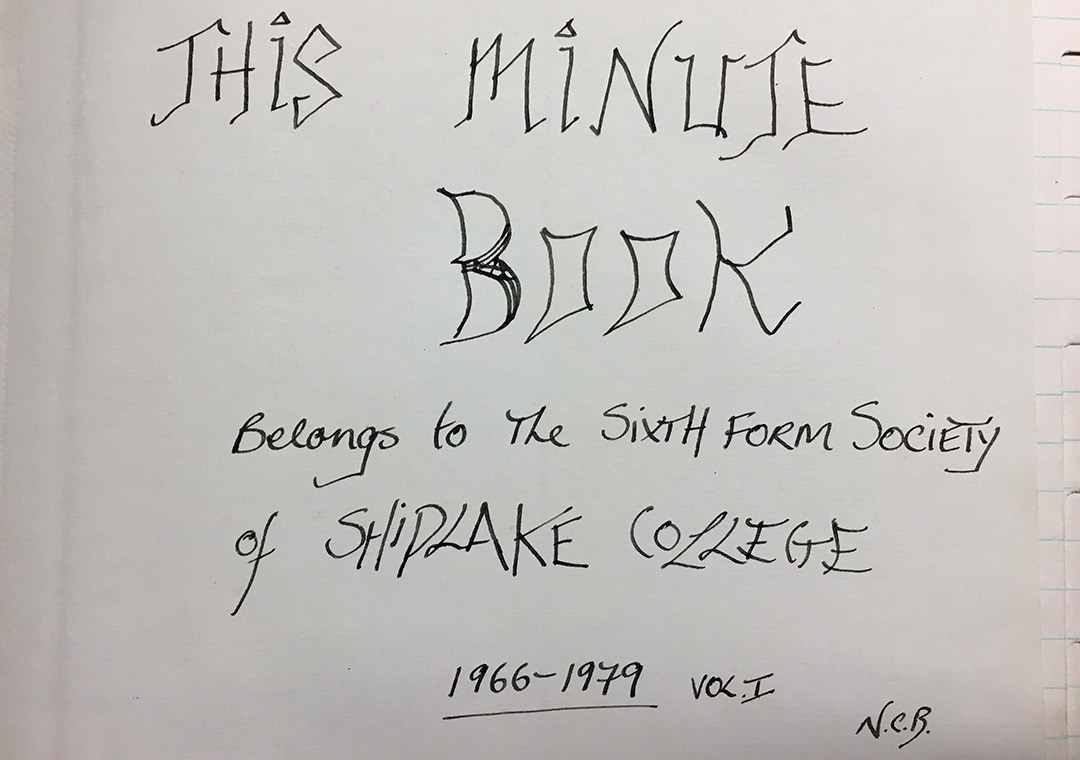 THiS MiNUTE
BOOK
Belongs to The SixTH FORM SOCiETY
of SHiPLAKE COLLEGE
1966-1979 VOL.I
N.C.B.